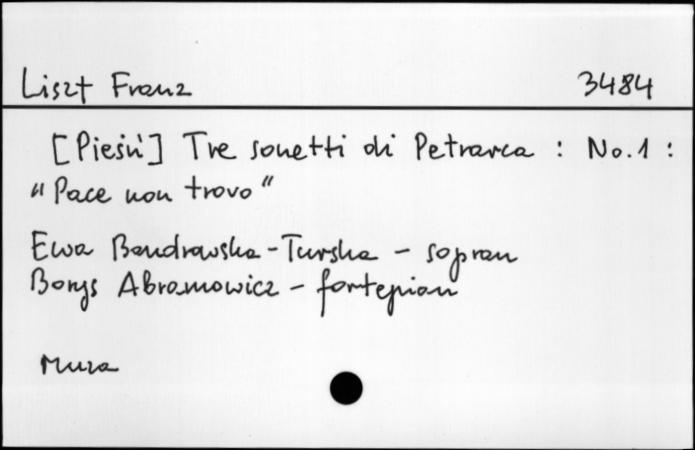 Liszt Franz 3484
[Pieśń] Tre sonetti di Petrarca : No.1 :
"Pace non trovo"
Ewa Bandrowska-Turska – sopran
Borys Abramowicz – fortepian
Muza